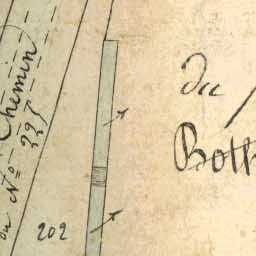 Chemin
ou N° 225
202
du
Both